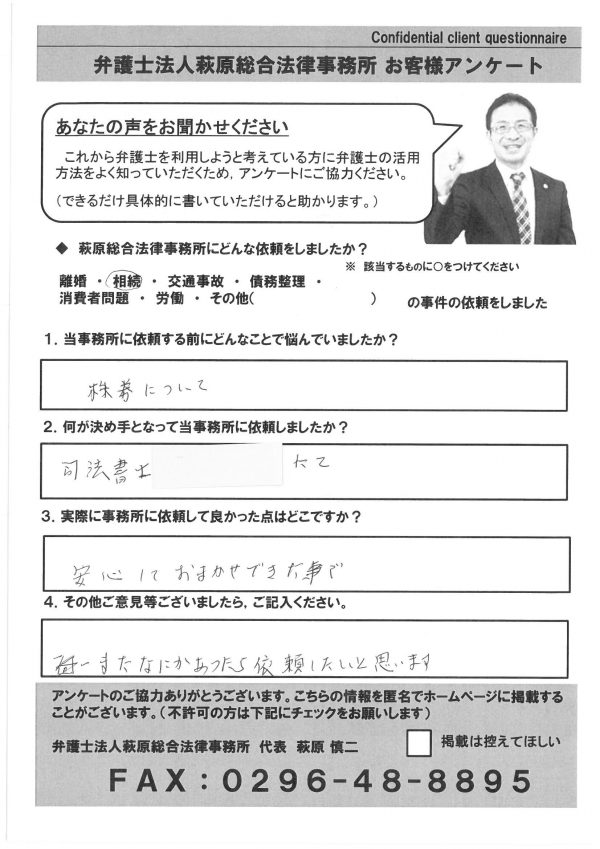 Confidential client questionnaire
弁護士法人萩原総合法律事務所 お客様アンケート
あなたの声をお聞かせください
これから弁護士を利用しようと考えている方に弁護士の活用
方法をよく知っていただくため，アンケートにご協力ください。
（できるだけ具体的に書いていただけると助かります。）
◆ 萩原総合法律事務所にどんな依頼をしましたか？
※ 該当するものに○をつけてください
離婚 ・ 相続 ・ 交通事故 ・ 債務整理 ・
消費者問題 ・ 労働 ・ その他( ) の事件の依頼をしました
1．当事務所に依頼する前にどんなことで悩んでいましたか？
株券について
2．何が決め手となって当事務所に依頼しましたか？
司法書士
3．実際に事務所に依頼して良かった点はどこですか？
安心しておまかせできた事で
4．その他ご意見等ございましたら，ご記入ください。
またなにかあったら依頼したいと思います
アンケートのご協力ありがとうございます。こちらの情報を匿名でホームページに掲載する
ことがございます。（不許可の方は下記にチェックをお願いします）
弁護士法人萩原総合法律事務所 代表 萩原 慎二
掲載は控えてほしい
FAX：0296-48-8895